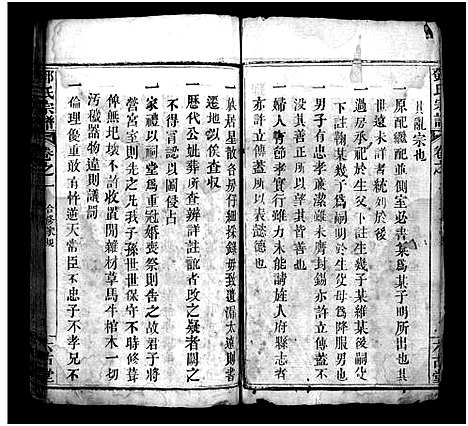 鄭氏宗譜 卷之一
且亂宗也
一原配繼配並側室必書某爲某子明所出也其
世遠未詳者統列於後
一過房承祧於所生父下註生幾子某雖某後嗣父
下註鞠某幾子某爲嗣明於生父母爲降服男也
一男子有忠孝義烈雖未膺封錫亦許立傳蓋不
沒其善以望其皆善也
一婦人青節孝實行雖力未能請旌入府縣志者
亦許立傳蓋所以表懿德也
一族居星散各房仔細採錄毋致遺漏太遠則否
遷地以收
一歷代公址葬所查辨詳註者改之疑者闕之
不得言以圖侵占
一家禮以祠堂爲重冠婚喪祭則告之故君子將
營宮室則先之凡我子孫世世保守不時修葺
俾無圯壞不許收置閒雜材草馬牛棺木一切
汚穢器物違則議罰
一倫理後重敢有忤逆天當臣不忠子不孝兄不
鄭氏宗譜 卷之一 合修家規 六古堂